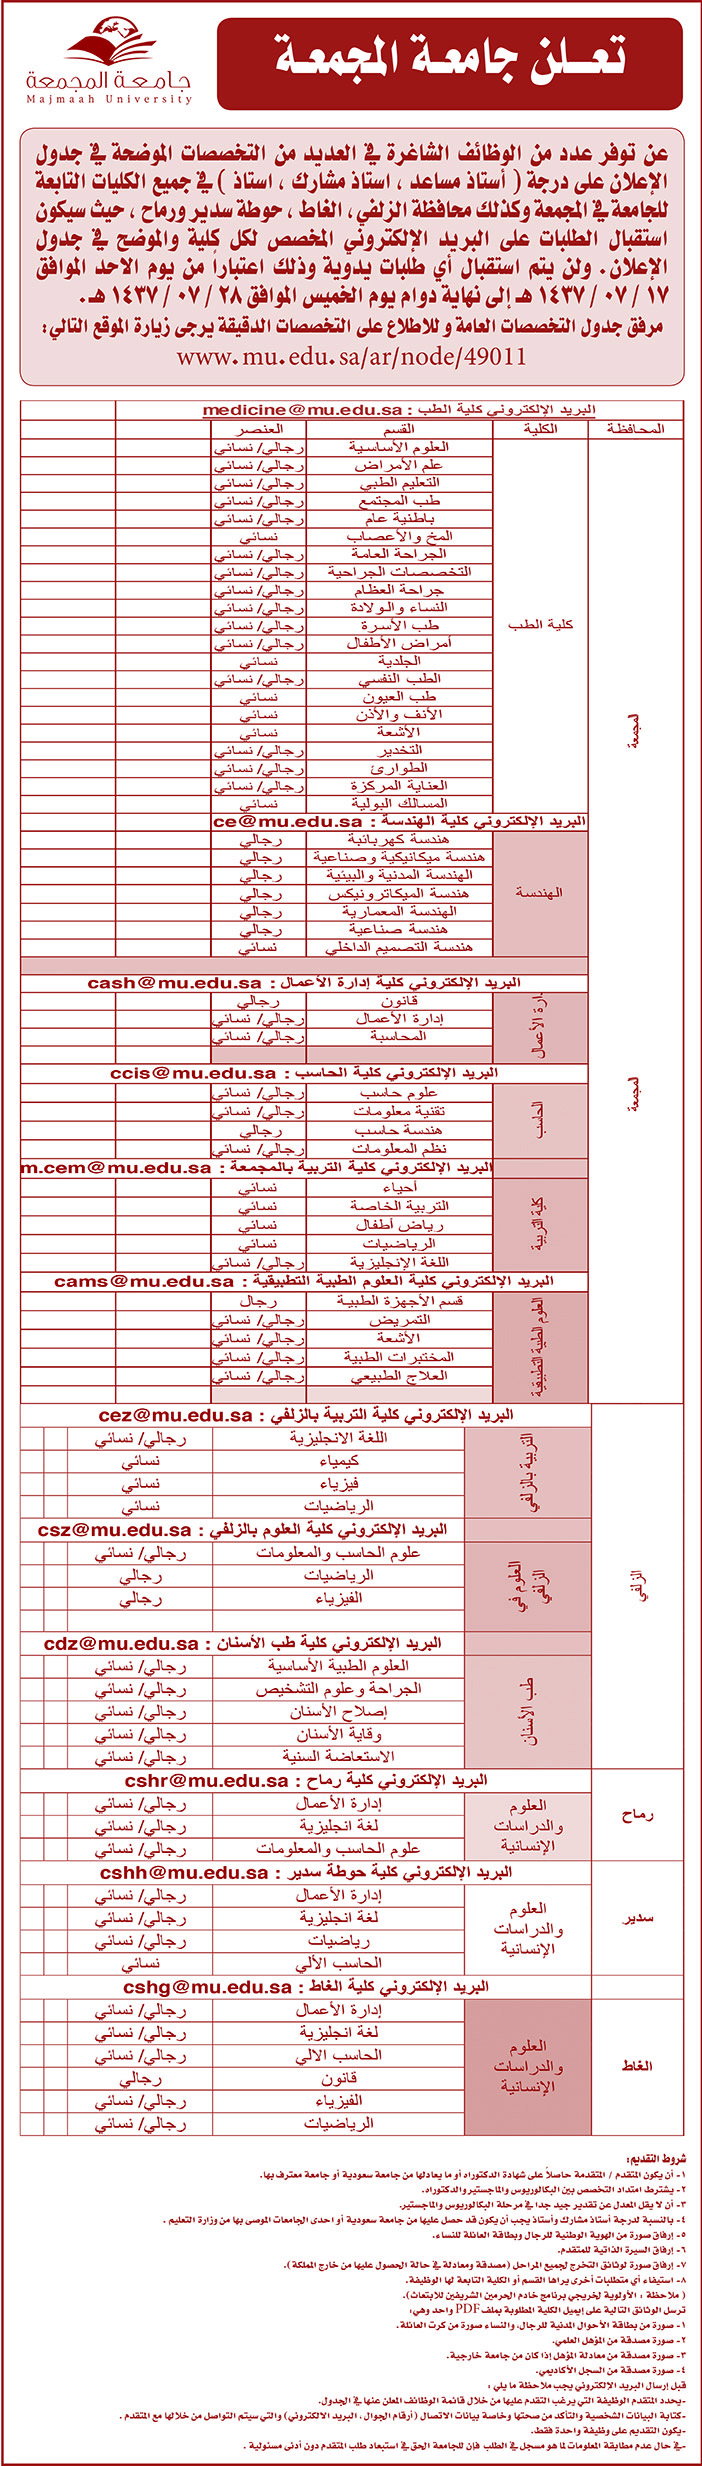 تعلن جامعة المجمعة
جامعة المجمعة
Majmaah University
عن توفر عدد من الوظائف الشاغرة في العديد من التخصصات الموضحة في جدول
الإعلان على درجة ( أستاذ مساعد ، استاذ مشارك ، استاذ ) في جميع الكليات التابعة
للجامعة في المجمعة وكذلك محافظة الزلفي، الغاط ، حوطة سدير ورماح ، حيث سيكون
استقبال الطلبات على البريد الإلكتروني المخصص لكل كلية والموضح في جدول
الإعلان. ولن يتم استقبال أي طلبات يدوية وذلك اعتباراً من يوم الاحد الموافق
١٧ / ٠٧ / ١٤٣٧ هـ إلى نهاية دوام يوم الخميس الموافق ٢٨ / ٠٧ / ١٤٣٧ هـ .
مرفق جدول التخصصات العامة وللاطلاع على التخصصات الدقيقة يرجى زيارة الموقع التالي:
www.mu.edu.sa/ar/node/49011
البريد الإلكتروني كلية الطب : medicine@mu.edu.sa
المحافظة الكلية القسم العنصر
المجمعة
كلية الطب
العلوم الأساسية رجالي/ نسائي
علم الأمراض رجالي/ نسائي
التعليم الطبي رجالي/ نسائي
طب المجتمع رجالي/ نسائي
باطنية عام رجالي/ نسائي
المخ والأعصاب نسائي
الجراحة العامة رجالي/ نسائي
التخصصات الجراحية رجالي/ نسائي
جراحة العظام رجالي/ نسائي
النساء والولادة رجالي/ نسائي
طب الأسرة رجالي/ نسائي
أمراض الأطفال رجالي/ نسائي
الجلدية نسائي
الطب النفسي رجالي/ نسائي
طب العيون نسائي
الأنف والأذن نسائي
الأشعة نسائي
التخدير رجالي/ نسائي
الطوارئ رجالي/ نسائي
العناية المركزة رجالي/ نسائي
المسالك البولية نسائي
البريد الإلكتروني كلية الهندسة : ce@mu.edu.sa
الهندسة
هندسة كهربائية رجالي
هندسة ميكانيكية وصناعية رجالي
الهندسة المدنية والبيئية رجالي
هندسة الميكاترونيكس رجالي
الهندسة المعمارية رجالي
هندسة صناعية رجالي
هندسة التصميم الداخلي نسائي
البريد الإلكتروني كلية إدارة الأعمال : cash@mu.edu.sa
إدارة الأعمال
قانون رجالي
إدارة الأعمال رجالي/ نسائي
المحاسبة رجالي/ نسائي
البريد الإلكتروني كلية الحاسب : ccis@mu.edu.sa
المجمعة
الحاسب
علوم حاسب رجالي/ نسائي
تقنية معلومات رجالي/ نسائي
هندسة حاسب رجالي
نظم المعلومات رجالي/ نسائي
البريد الإلكتروني كلية التربية بالمجمعة : m.cem@mu.edu.sa
كلية التربية
أحياء نسائي
التربية الخاصة نسائي
رياض أطفال نسائي
الرياضيات نسائي
اللغة الإنجليزية رجالي/ نسائي
البريد الإلكتروني كلية العلوم الطبية التطبيقية : cams@mu.edu.sa
العلوم الطبية التطبيقية
قسم الأجهزة الطبية رجال
التمريض رجالي/ نسائي
الأشعة رجالي/ نسائي
المختبرات الطبية رجالي/ نسائي
العلاج الطبيعي رجالي/ نسائي
البريد الإلكتروني كلية التربية بالزلفي : cez@mu.edu.sa
الزلفي
التربية بالزلفي
اللغة الانجليزية رجالي/ نسائي
كيمياء نسائي
فيزياء نسائي
الرياضيات نسائي
البريد الإلكتروني كلية العلوم بالزلفي : csz@mu.edu.sa
العلوم في الزلفي
علوم الحاسب والمعلومات رجالي/ نسائي
الرياضيات رجالي
الفيزياء رجالي
البريد الإلكتروني كلية طب الأسنان : cdz@mu.edu.sa
طب الأسنان
العلوم الطبية الأساسية رجالي/ نسائي
الجراحة وعلوم التشخيص رجالي/ نسائي
إصلاح الأسنان رجالي/ نسائي
وقاية الأسنان رجالي/ نسائي
الاستعاضة السنية رجالي/ نسائي
البريد الإلكتروني كلية رماح : cshr@mu.edu.sa
رماح
العلوم والدراسات الإنسانية
إدارة الأعمال رجالي/ نسائي
لغة انجليزية رجالي/ نسائي
علوم الحاسب والمعلومات رجالي/ نسائي
البريد الإلكتروني كلية حوطة سدير : cshh@mu.edu.sa
سدير
العلوم والدراسات الإنسانية
إدارة الأعمال رجالي/ نسائي
لغة انجليزية رجالي/ نسائي
رياضيات رجالي/ نسائي
الحاسب الألي نسائي
البريد الإلكتروني كلية الغاط : cshg@mu.edu.sa
الغاط
العلوم والدراسات الإنسانية
إدارة الأعمال رجالي/ نسائي
لغة انجليزية رجالي/ نسائي
الحاسب الالي رجالي/ نسائي
قانون رجالي
الفيزياء رجالي/ نسائي
الرياضيات رجالي/ نسائي
شروط التقديم:
١- أن يكون المتقدم / المتقدمة حاصلاً على شهادة الدكتوراه أو ما يعادلها من جامعة سعودية أو جامعة معترف بها.
٢- يشترط امتداد التخصص بين البكالوريوس والماجستير والدكتوراه.
٣- أن لا يقل المعدل عن تقدير جيد جدا في مرحلة البكالوريوس والماجستير.
٤- بالنسبة لدرجة أستاذ مشارك وأستاذ يجب أن يكون قد حصل عليها من جامعة سعودية أو احدى الجامعات الموصى بها من وزارة التعليم .
٥- إرفاق صورة من الهوية الوطنية للرجال وبطاقة العائلة للنساء.
٦- إرفاق السيرة الذاتية للمتقدم.
٧- إرفاق صورة لوثائق التخرج لجميع المراحل (مصدقة ومعادلة في حالة الحصول عليها من خارج المملكة).
٨- استيفاء أي متطلبات أخرى يراها القسم أو الكلية التابعة لها الوظيفة.
( ملاحظة : الأولوية لخريجي برنامج خادم الحرمين الشريفين للابتعاث).
ترسل الوثائق التالية على إيميل الكلية المطلوبة بملف PDF واحد وهي:
١- صورة من بطاقة الأحوال المدنية للرجال، والنساء صورة من كرت العائلة.
٢- صورة مصدقة من المؤهل العلمي.
٣- صورة مصدقة من معادلة المؤهل إذا كان من جامعة خارجية.
٤- صورة مصدقة من السجل الأكاديمي.
قبل إرسال البريد الإلكتروني يجب ملاحظة ما يلي :
-يحدد المتقدم الوظيفة التي يرغب التقدم عليها من خلال قائمة الوظائف المعلن عنها في الجدول.
-كتابة البيانات الشخصية والتأكد من صحتها وخاصة بيانات الاتصال (أرقام الجوال ، البريد الالكتروني) والتي سيتم التواصل من خلالها مع المتقدم .
-يكون التقديم على وظيفة واحدة فقط.
-في حال عدم مطابقة المعلومات لما هو مسجل في الطلب فإن للجامعة الحق في استبعاد طلب المتقدم دون أدنى مسئولية .